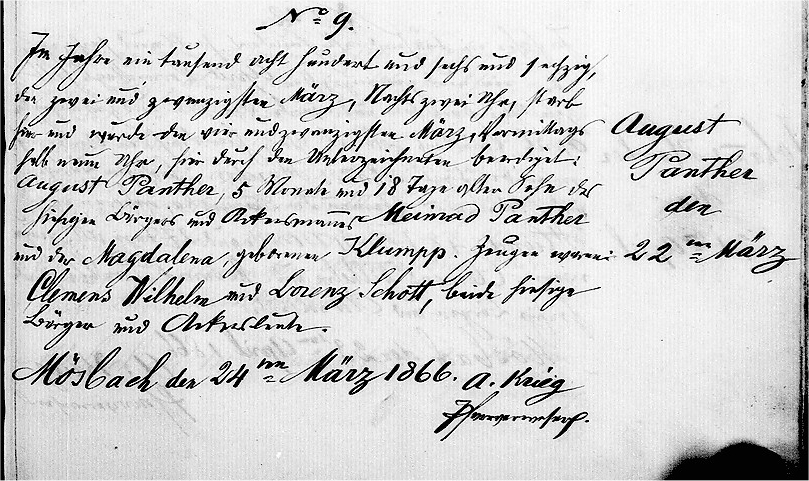 No 9.
Im Jahre ein tausend acht hundert und sechs und sechzig,
den zwei und zwanzigsten März, Nachts zwei Uhr, starb
hier und wurde den vier und zwanzigsten März, Vormittags
halb neun Uhr, hier durch den Unterzeichneten beerdiget:
August Panther, 5 Monate und 18 Tage alter Sohn des
hiesigen Bürgers und Ackersmannes Meinrad Panther
und der Magdalena, geborenen Klumpp. Zeugen waren:
Clemens Wilhelm und Lorenz Schott, beide hiesige
Bürger und Ackersleute.
Mösbach den 24ten März 1866. A. Krieg
Pfarrverweser.
August
Panther
den
22ten März